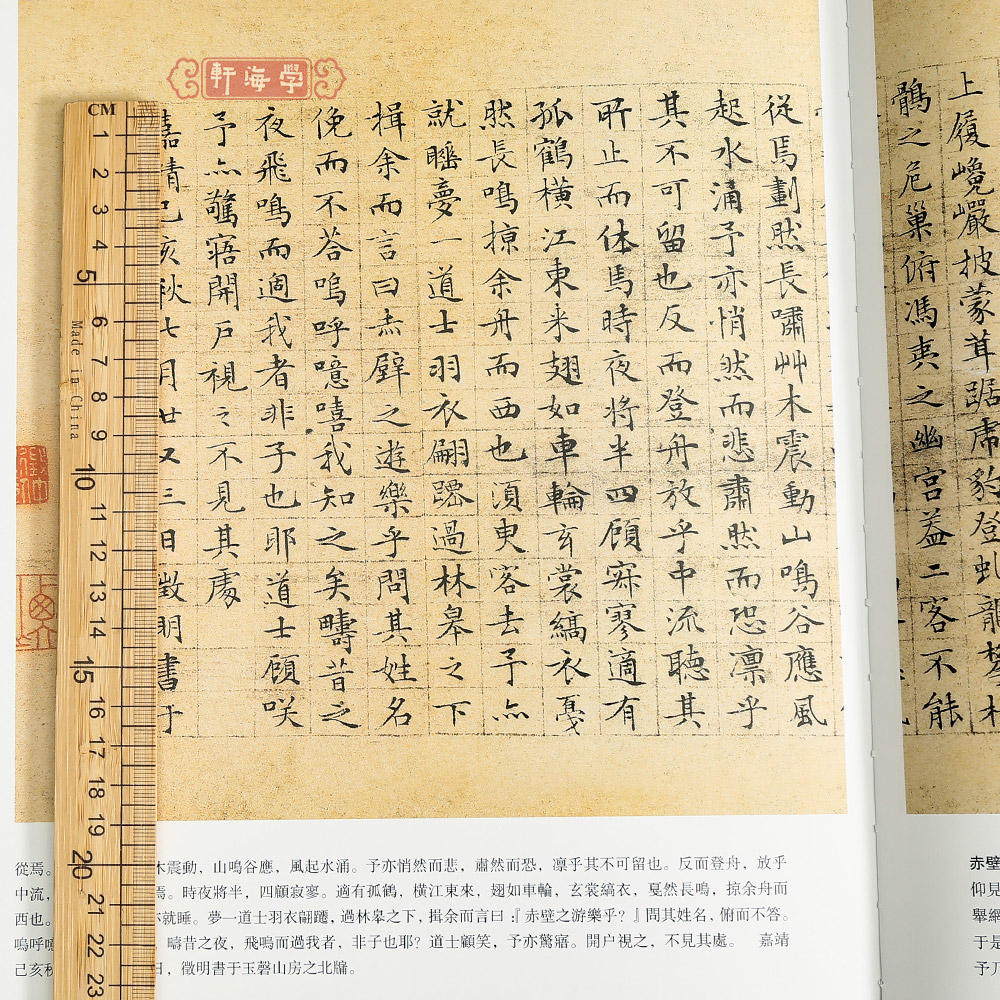 學海軒
上履巉巗披蒙茸踞虎豹登虬龍攀
鶻之危巢俯馮夷之幽宮葢二客不能
從焉劃然長嘯艸木震動山鳴谷應風
起水涌予亦悄然而悲肅然而恐凛乎
其不可留也反而登舟放乎中流聽其
所止而休焉時夜將半四顧寂寥適有
孤鶴橫江東来翅如車輪玄裳縞衣戛
然長鳴掠余舟而西也須臾客去予亦
就睡夢一道士羽衣翩躚過林皋之下
揖余而言曰赤壁之遊樂乎問其姓名
俛而不荅嗚呼噫嘻我知之矣疇昔之
夜飛鳴而過我者非子也耶道士顧咲
予亦驚寤開戶視之不見其處
嘉靖己亥秋七月廿又三日徵明書于
CM
1 2 3 4 5 6 7 8 9 10 11 12 13 14 15 16 17 18 19 20 21 22 23
Made in China
從焉。木震動，山鳴谷應，風起水涌。予亦悄然而悲，肅然而恐，凛乎其不可留也。反而登舟，放乎
中流，焉。時夜將半，四顧寂寥。適有孤鶴，橫江東來，翅如車輪，玄裳縞衣，戛然長鳴，掠余舟而
西也。就睡。夢一道士羽衣翩躚，過林皋之下，揖余而言曰：『赤壁之游樂乎？』問其姓名，俯而不答。
嗚呼，疇昔之夜，飛鳴而過我者，非子也耶？道士顧笑，予亦驚寤。開户視之，不見其處。 嘉靖
己亥秋日，徵明書于玉磬山房之北牖。
赤壁
仰見
舉網
于是
予乃